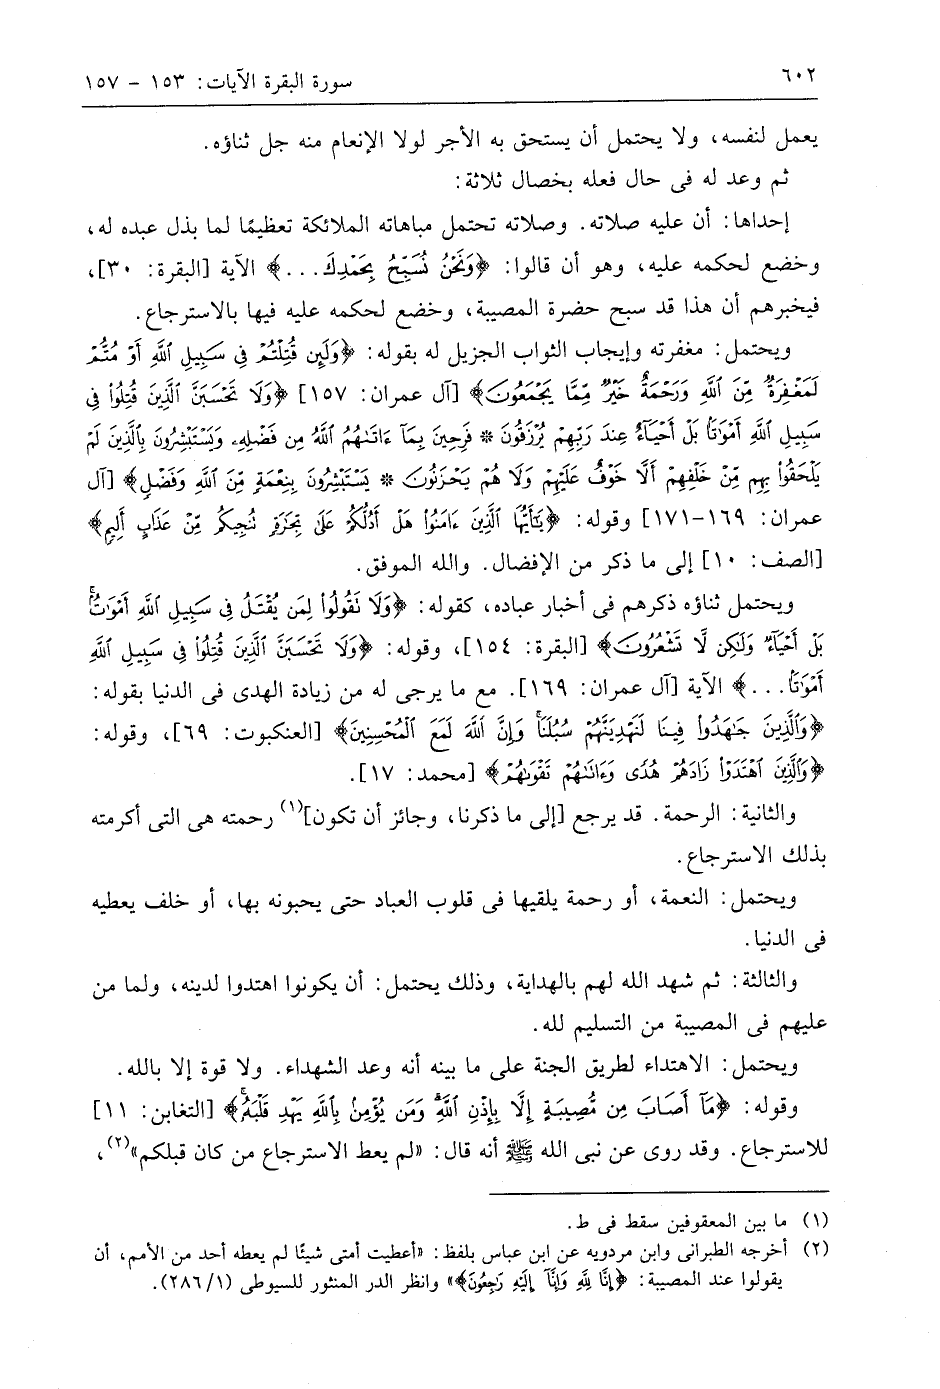 ٦٠٢
سورة البقرة الآيات: ١٥٣ - ١٥٧
يعمل لنفسه، ولا يحتمل أن يستحق به الأجر لولا الإنعام منه جل ثناؤه.
ثم وعد له فى حال فعله بخصال ثلاثة:
إحداها: أن عليه صلاته. وصلاته تحتمل مباهاته الملائكة تعظيمًا لما بذل عبده له،
وخضع لحكمه عليه، وهو أن قالوا: ﴿وَنَحْنُ نُسَبِّحُ بِحَمْدِكَ...﴾ الآية [البقرة: ٣٠]،
فيخبرهم أن هذا قد سبح حضرة المصيبة، وخضع لحكمه عليه فيها بالاسترجاع.
ويحتمل: مغفرته وإيجاب الثواب الجزيل له بقوله: ﴿وَلَئِن قُتِلْتُمْ فِى سَبِيلِ ٱللَّهِ أَوْ مُتُّمْ
لَمَغْفِرَةٌ مِّنَ ٱللَّهِ وَرَحْمَةٌ خَيْرٌ مِّمَّا يَجْمَعُونَ﴾ [آل عمران: ١٥٧] ﴿وَلَا تَحْسَبَنَّ ٱلَّذِينَ قُتِلُوا۟ فِى
سَبِيلِ ٱللَّهِ أَمْوَٰتًۢا بَلْ أَحْيَآءٌ عِندَ رَبِّهِمْ يُرْزَقُونَ * فَرِحِينَ بِمَآ ءَاتَىٰهُمُ ٱللَّهُ مِن فَضْلِهِۦ وَيَسْتَبْشِرُونَ بِٱلَّذِينَ لَمْ
يَلْحَقُوا۟ بِهِم مِّنْ خَلْفِهِمْ أَلَّا خَوْفٌ عَلَيْهِمْ وَلَا هُمْ يَحْزَنُونَ * يَسْتَبْشِرُونَ بِنِعْمَةٍ مِّنَ ٱللَّهِ وَفَضْلٍ﴾ [آل
عمران: ١٦٩-١٧١] وقوله: ﴿يَٰٓأَيُّهَا ٱلَّذِينَ ءَامَنُوا۟ هَلْ أَدُلُّكُمْ عَلَىٰ تِجَٰرَةٍ تُنجِيكُم مِّنْ عَذَابٍ أَلِيمٍ﴾
[الصف: ١٠] إلى ما ذكر من الإفضال. والله الموفق.
ويحتمل ثناؤه ذكرهم فى أخبار عباده، كقوله: ﴿وَلَا تَقُولُوا۟ لِمَن يُقْتَلُ فِى سَبِيلِ ٱللَّهِ أَمْوَٰتٌۢ
بَلْ أَحْيَآءٌ وَلَٰكِن لَّا تَشْعُرُونَ﴾ [البقرة: ١٥٤]، وقوله: ﴿وَلَا تَحْسَبَنَّ ٱلَّذِينَ قُتِلُوا۟ فِى سَبِيلِ ٱللَّهِ
أَمْوَٰتًۢا...﴾ الآية [آل عمران: ١٦٩]. مع ما يرجى له من زيادة الهدى فى الدنيا بقوله:
﴿وَٱلَّذِينَ جَٰهَدُوا۟ فِينَا لَنَهْدِيَنَّهُمْ سُبُلَنَا وَإِنَّ ٱللَّهَ لَمَعَ ٱلْمُحْسِنِينَ﴾ [العنكبوت: ٦٩]، وقوله:
﴿وَٱلَّذِينَ ٱهْتَدَوْا۟ زَادَهُمْ هُدًى وَءَاتَىٰهُمْ تَقْوَىٰهُمْ﴾ [محمد: ١٧].
والثانية: الرحمة. قد يرجع [إلى ما ذكرنا، وجائز أن تكون](١) رحمته هى التى أكرمته
بذلك الاسترجاع.
ويحتمل: النعمة، أو رحمة يلقيها فى قلوب العباد حتى يحبونه بها، أو خلف يعطيه
فى الدنيا.
والثالثة: ثم شهد الله لهم بالهداية، وذلك يحتمل: أن يكونوا اهتدوا لدينه، ولما من
عليهم فى المصيبة من التسليم لله.
ويحتمل: الاهتداء لطريق الجنة على ما بينه أنه وعد الشهداء. ولا قوة إلا بالله.
وقوله: ﴿مَآ أَصَابَ مِن مُّصِيبَةٍ إِلَّا بِإِذْنِ ٱللَّهِ وَمَن يُؤْمِنۢ بِٱللَّهِ يَهْدِ قَلْبَهُۥ﴾ [التغابن: ١١]
للاسترجاع. وقد روى عن نبى الله ﷺ أنه قال: «لم يعط الاسترجاع من كان قبلكم»(٢)،
(١) ما بين المعقوفين سقط فى ط.
(٢) أخرجه الطبرانى وابن مردويه عن ابن عباس بلفظ: «أعطيت أمتى شيئًا لم يعطه أحد من الأمم، أن
يقولوا عند المصيبة: ﴿إِنَّا لِلَّهِ وَإِنَّآ إِلَيْهِ رَٰجِعُونَ﴾» وانظر الدر المنثور للسيوطى (٢٨٦/١).